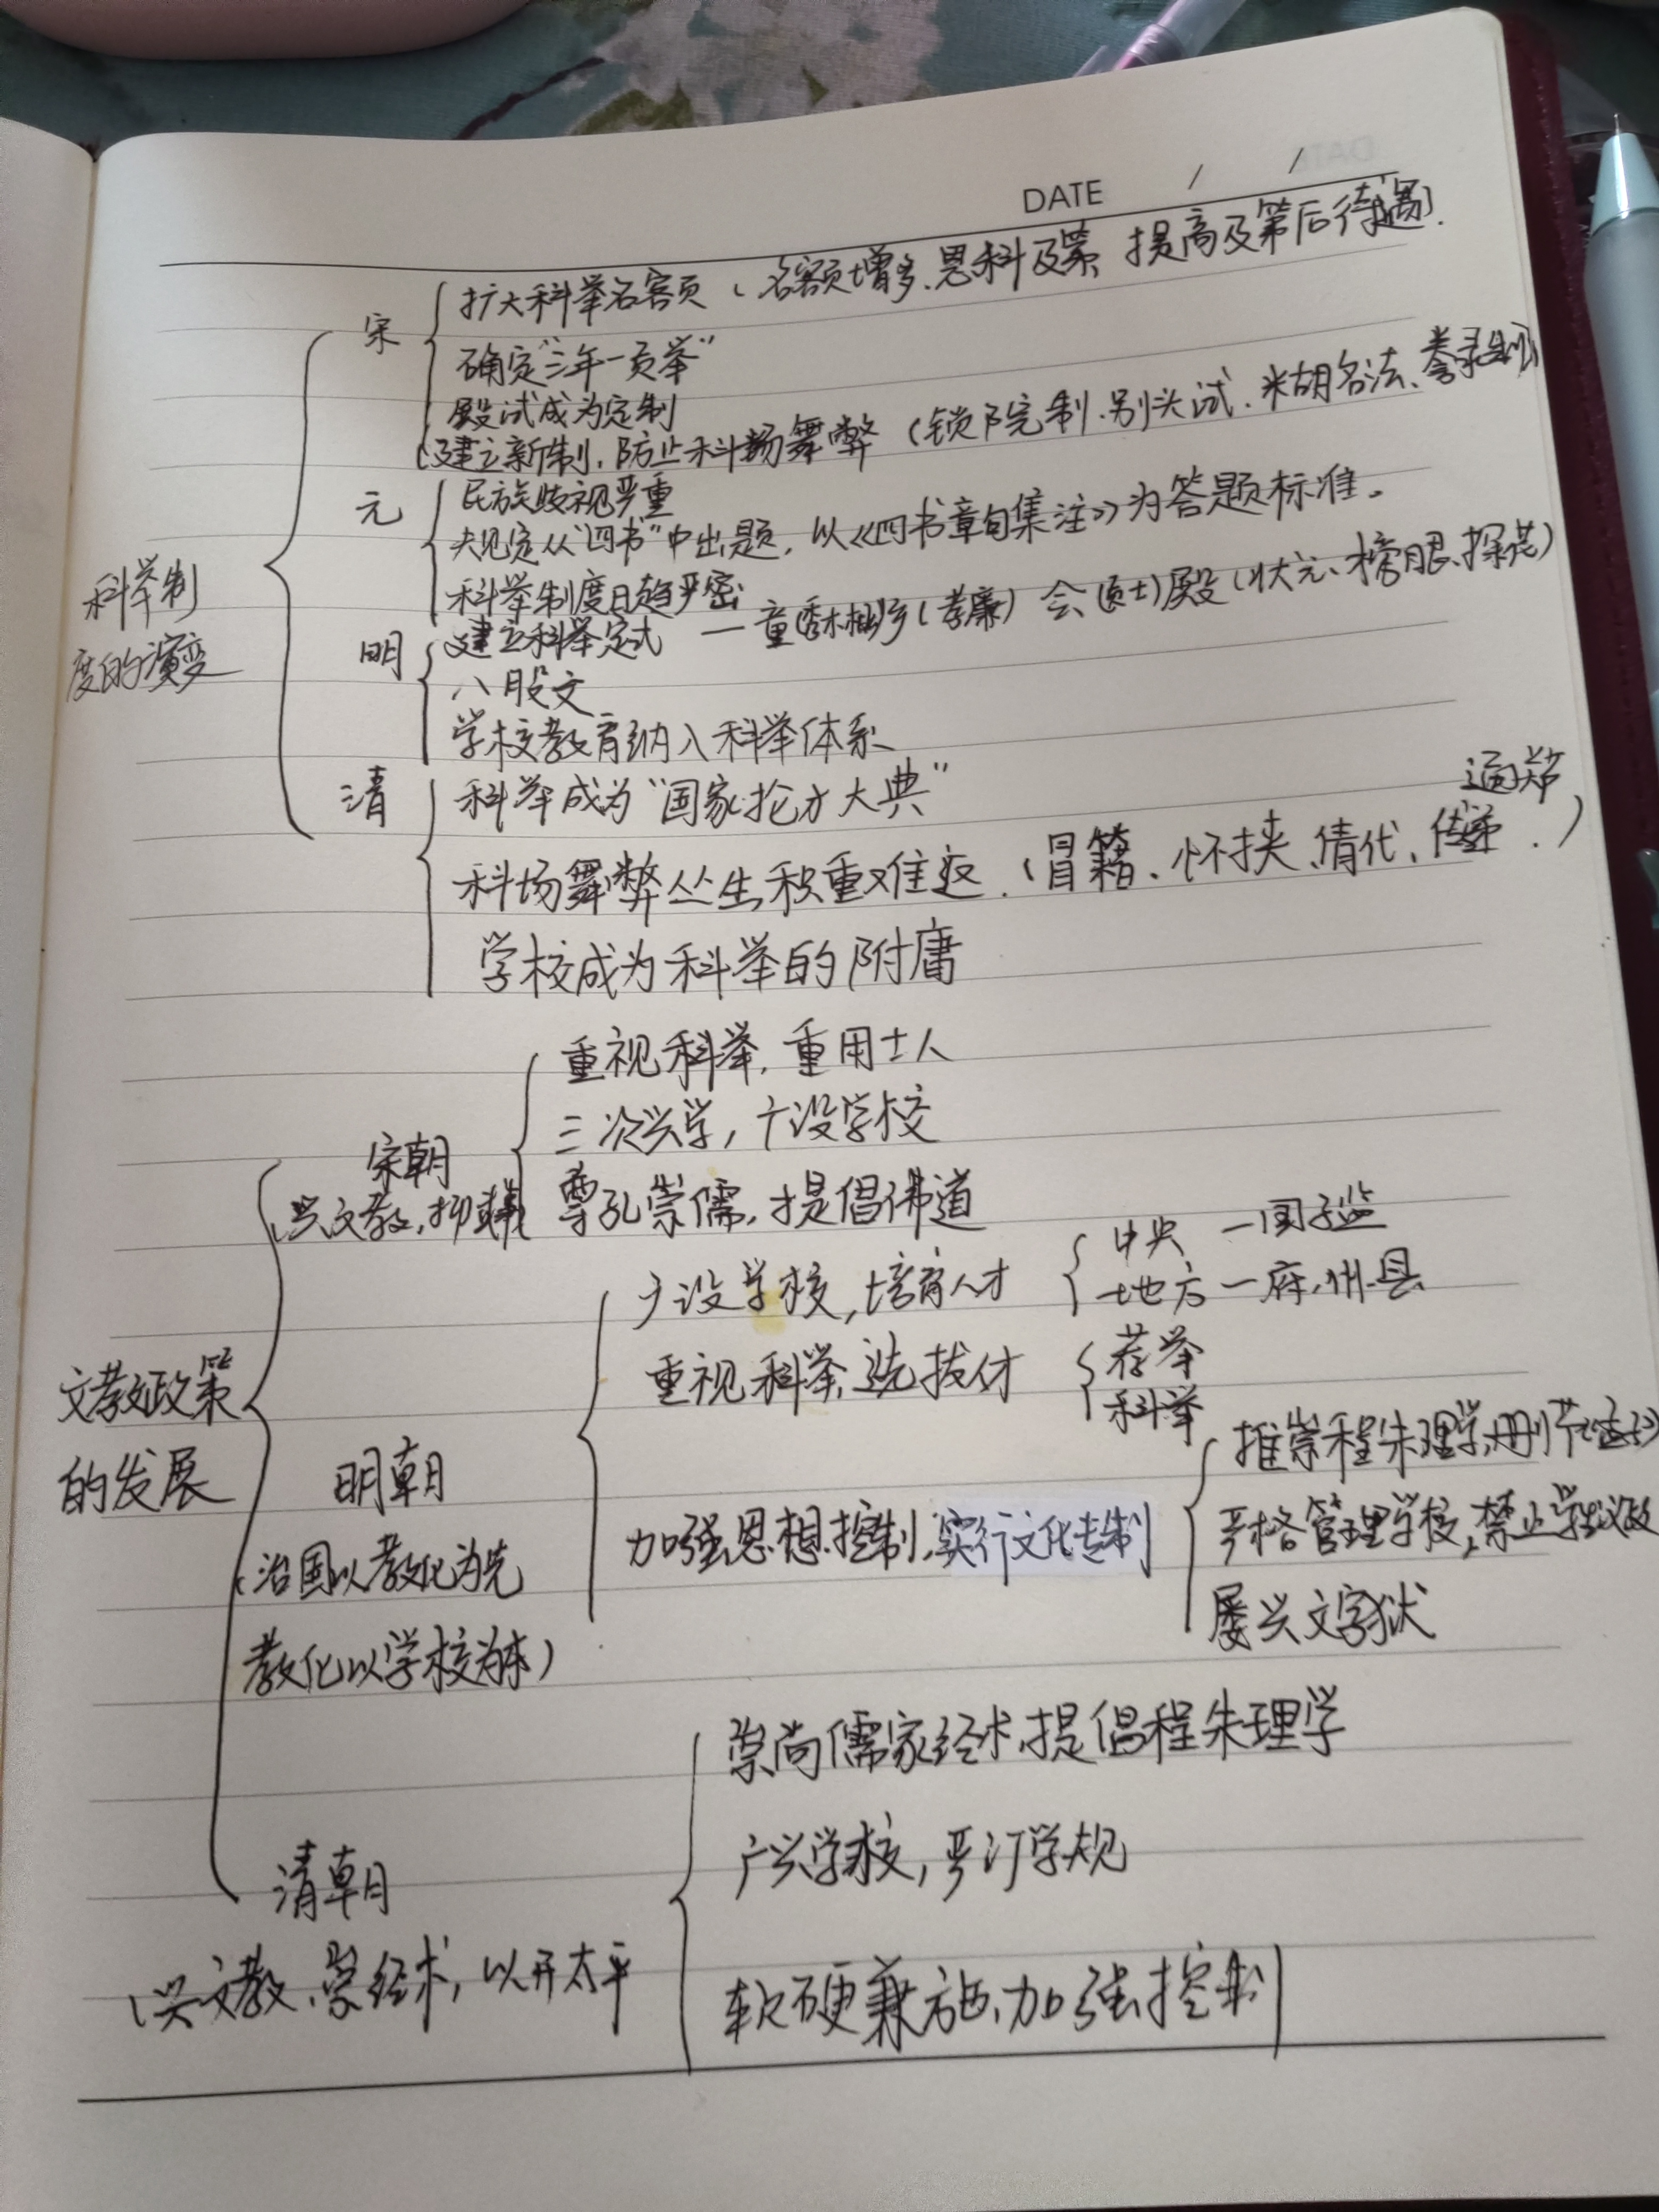 DATE / /
宋 扩大科举名额（名额增多、恩科及第、提高及第后待遇）
确定“三年一贡举”
殿试成为定制
建立新制，防止科场舞弊（锁院制、别头试、糊名法、誊录制）
元 民族歧视严重
规定从“四书”中出题，以《四书章句集注》为答题标准。
科举制度日趋严密
科举制
度的演变
明 建立科举定式 — 童（秀才）乡（孝廉）会（贡士）殿（状元、榜眼、探花）
八股文
学校教育纳入科举体系
清 科举成为“国家抡才大典”
通关节
科场舞弊丛生，积重难返.（冒籍、怀挟、倩代、传递、）
学校成为科举的附庸
重视科举，重用士人
三次兴学，广设学校
宋朝
（兴文教，抑武 尊孔崇儒，提倡佛道
广设学校，培育人才 中央 — 国子监
地方 — 府、州、县
重视科举，选拔人才 荐举
科举
文教政策
的发展
明朝
（治国以教化为先
教化以学校为本）
加强思想控制，实行文化专制
推崇程朱理学，删节孟子
严格管理学校，禁止学生议政
屡兴文字狱
崇尚儒家经术，提倡程朱理学
广兴学校，严订学规
清朝
（兴文教、崇经术，以开太平
软硬兼施，加强控制